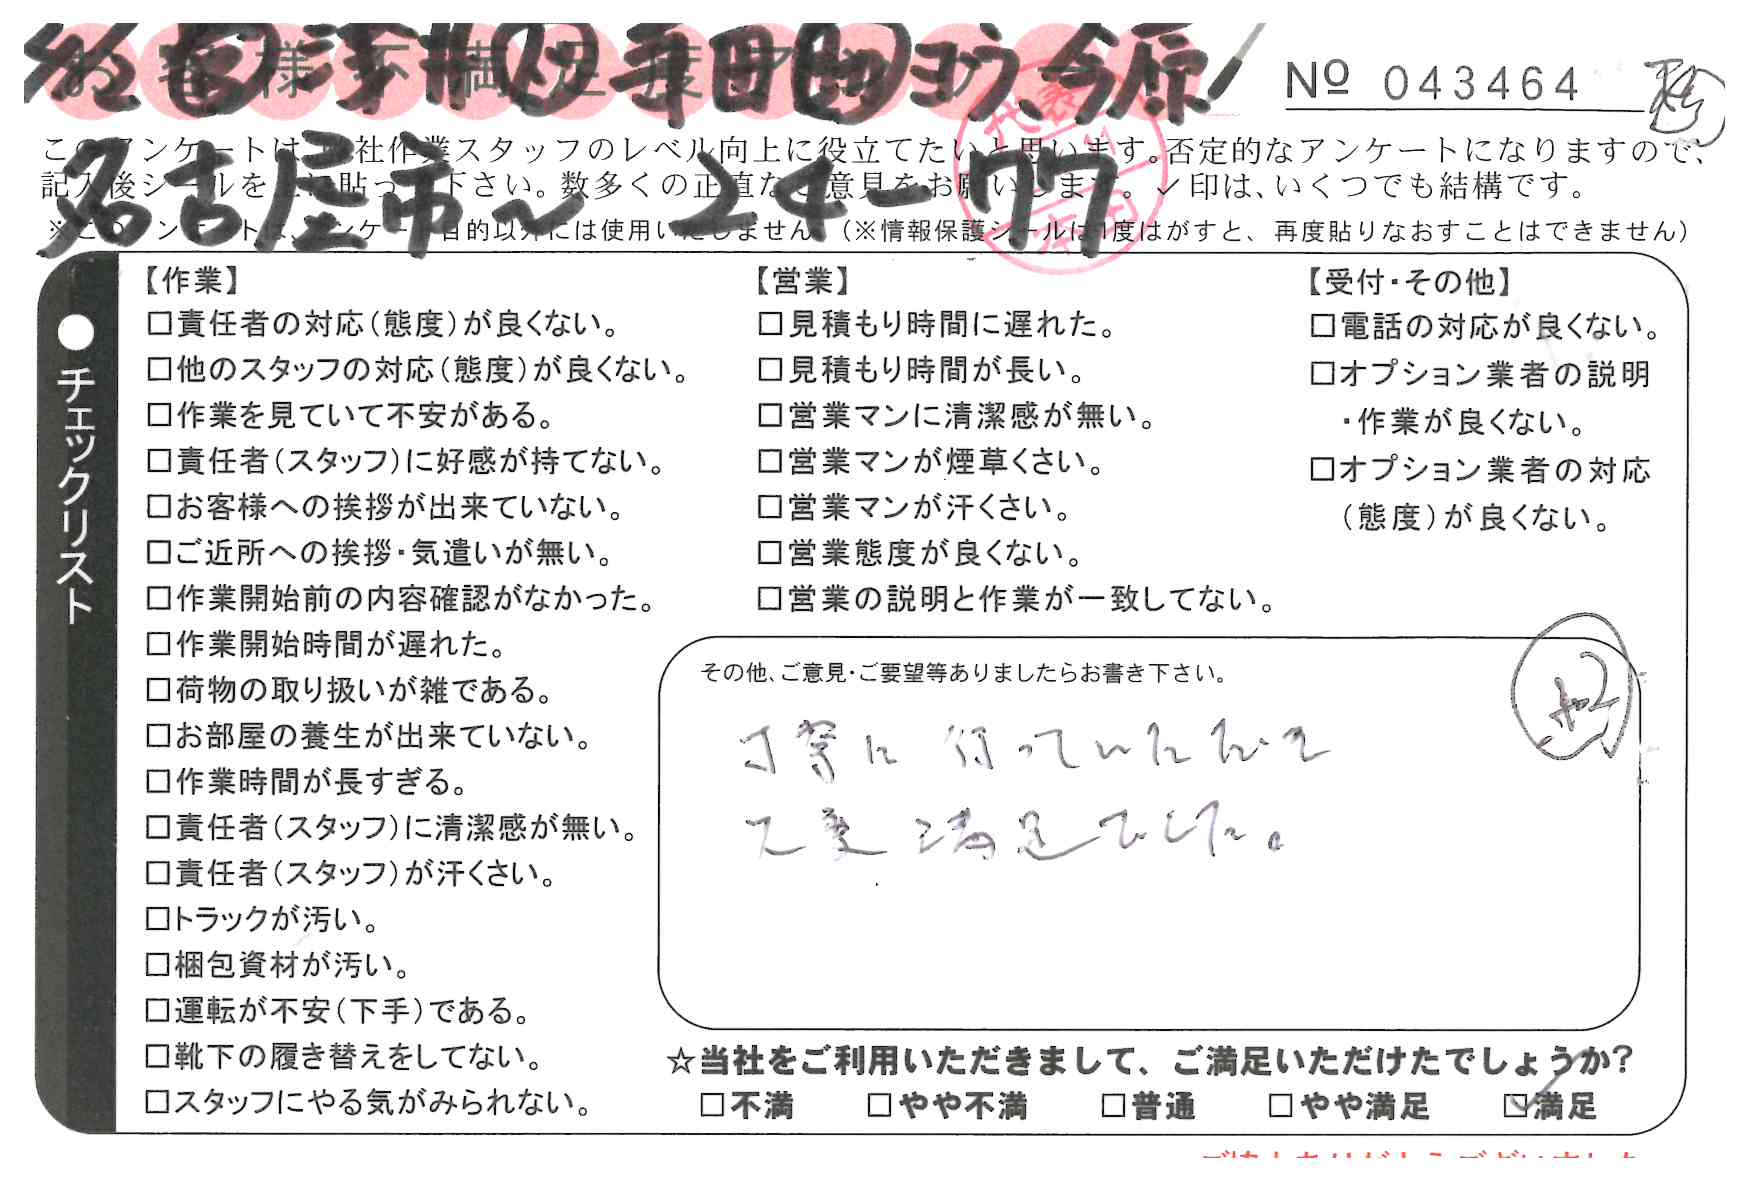 お客様不満足度アンケート
№ 043464
このアンケートは、当社作業スタッフのレベル向上に役立てたいと思います。否定的なアンケートになりますので、
記入後シールを上に貼って下さい。数多くの正直なご意見をお願いします。✓印は、いくつでも結構です。
※このアンケートは、アンケート目的以外には使用いたしません。(※情報保護シールは1度はがすと、再度貼りなおすことはできません)
名古屋市~ 24-77
●チェックリスト
【作業】
□責任者の対応(態度)が良くない。
□他のスタッフの対応(態度)が良くない。
□作業を見ていて不安がある。
□責任者(スタッフ)に好感が持てない。
□お客様への挨拶が出来ていない。
□ご近所への挨拶・気遣いが無い。
□作業開始前の内容確認がなかった。
□作業開始時間が遅れた。
□荷物の取り扱いが雑である。
□お部屋の養生が出来ていない。
□作業時間が長すぎる。
□責任者(スタッフ)に清潔感が無い。
□責任者(スタッフ)が汗くさい。
□トラックが汚い。
□梱包資材が汚い。
□運転が不安(下手)である。
□靴下の履き替えをしてない。
□スタッフにやる気がみられない。
【営業】
□見積もり時間に遅れた。
□見積もり時間が長い。
□営業マンに清潔感が無い。
□営業マンが煙草くさい。
□営業マンが汗くさい。
□営業態度が良くない。
□営業の説明と作業が一致してない。
【受付・その他】
□電話の対応が良くない。
□オプション業者の説明
・作業が良くない。
□オプション業者の対応
(態度)が良くない。
その他、ご意見・ご要望等ありましたらお書き下さい。
丁寧に行っていただいて
大変満足でした。
☆当社をご利用いただきまして、ご満足いただけたでしょうか?
□不満 □やや不満 □普通 □やや満足 ☑満足